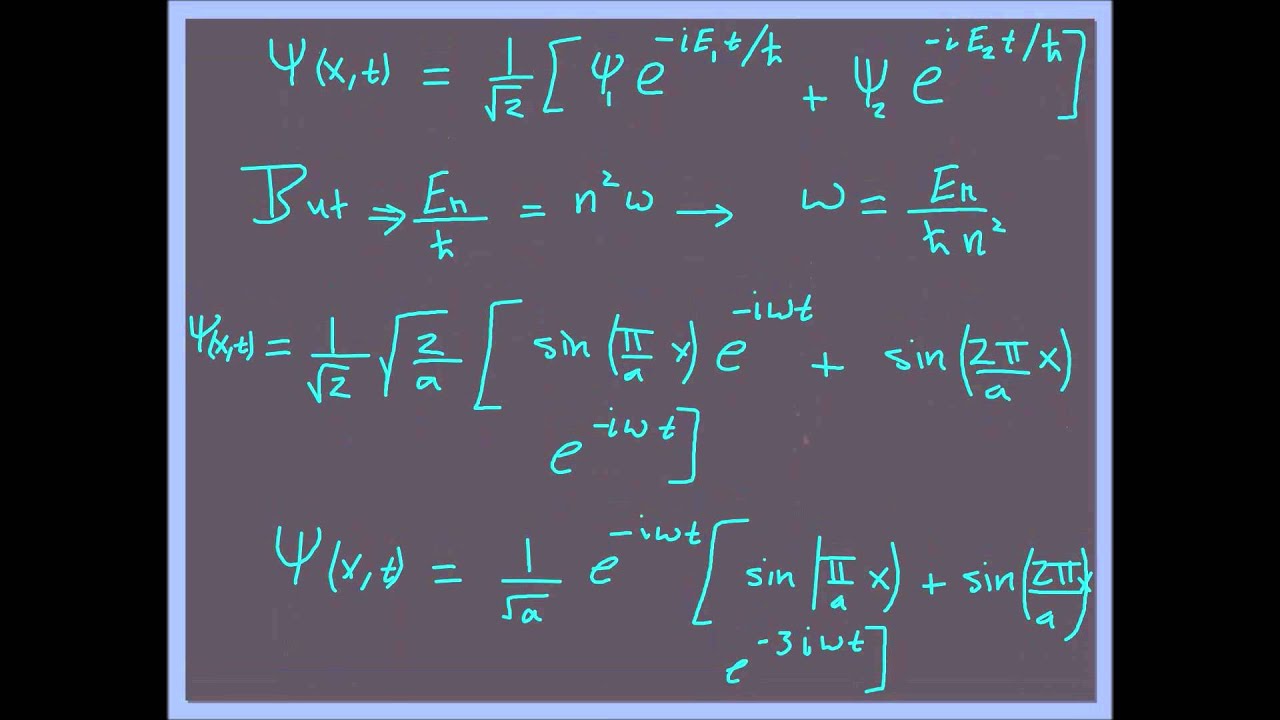 Ψ(x,t) = 1/√2 [ψ₁ e^(-iE₁t/ħ) + ψ₂ e^(-iE₂t/ħ)]
But ⇒ Eₙ/ħ = n²ω → ω = Eₙ/ħn²
Ψ(x,t) = 1/√2 √(2/a) [sin(π/a x) e^(-iωt) + sin(2π/a x)
e^(-iωt)]
Ψ(x,t) = 1/√a e^(-iωt) [sin(π/a x) + sin(2π/a x)
e^(-3iωt)]